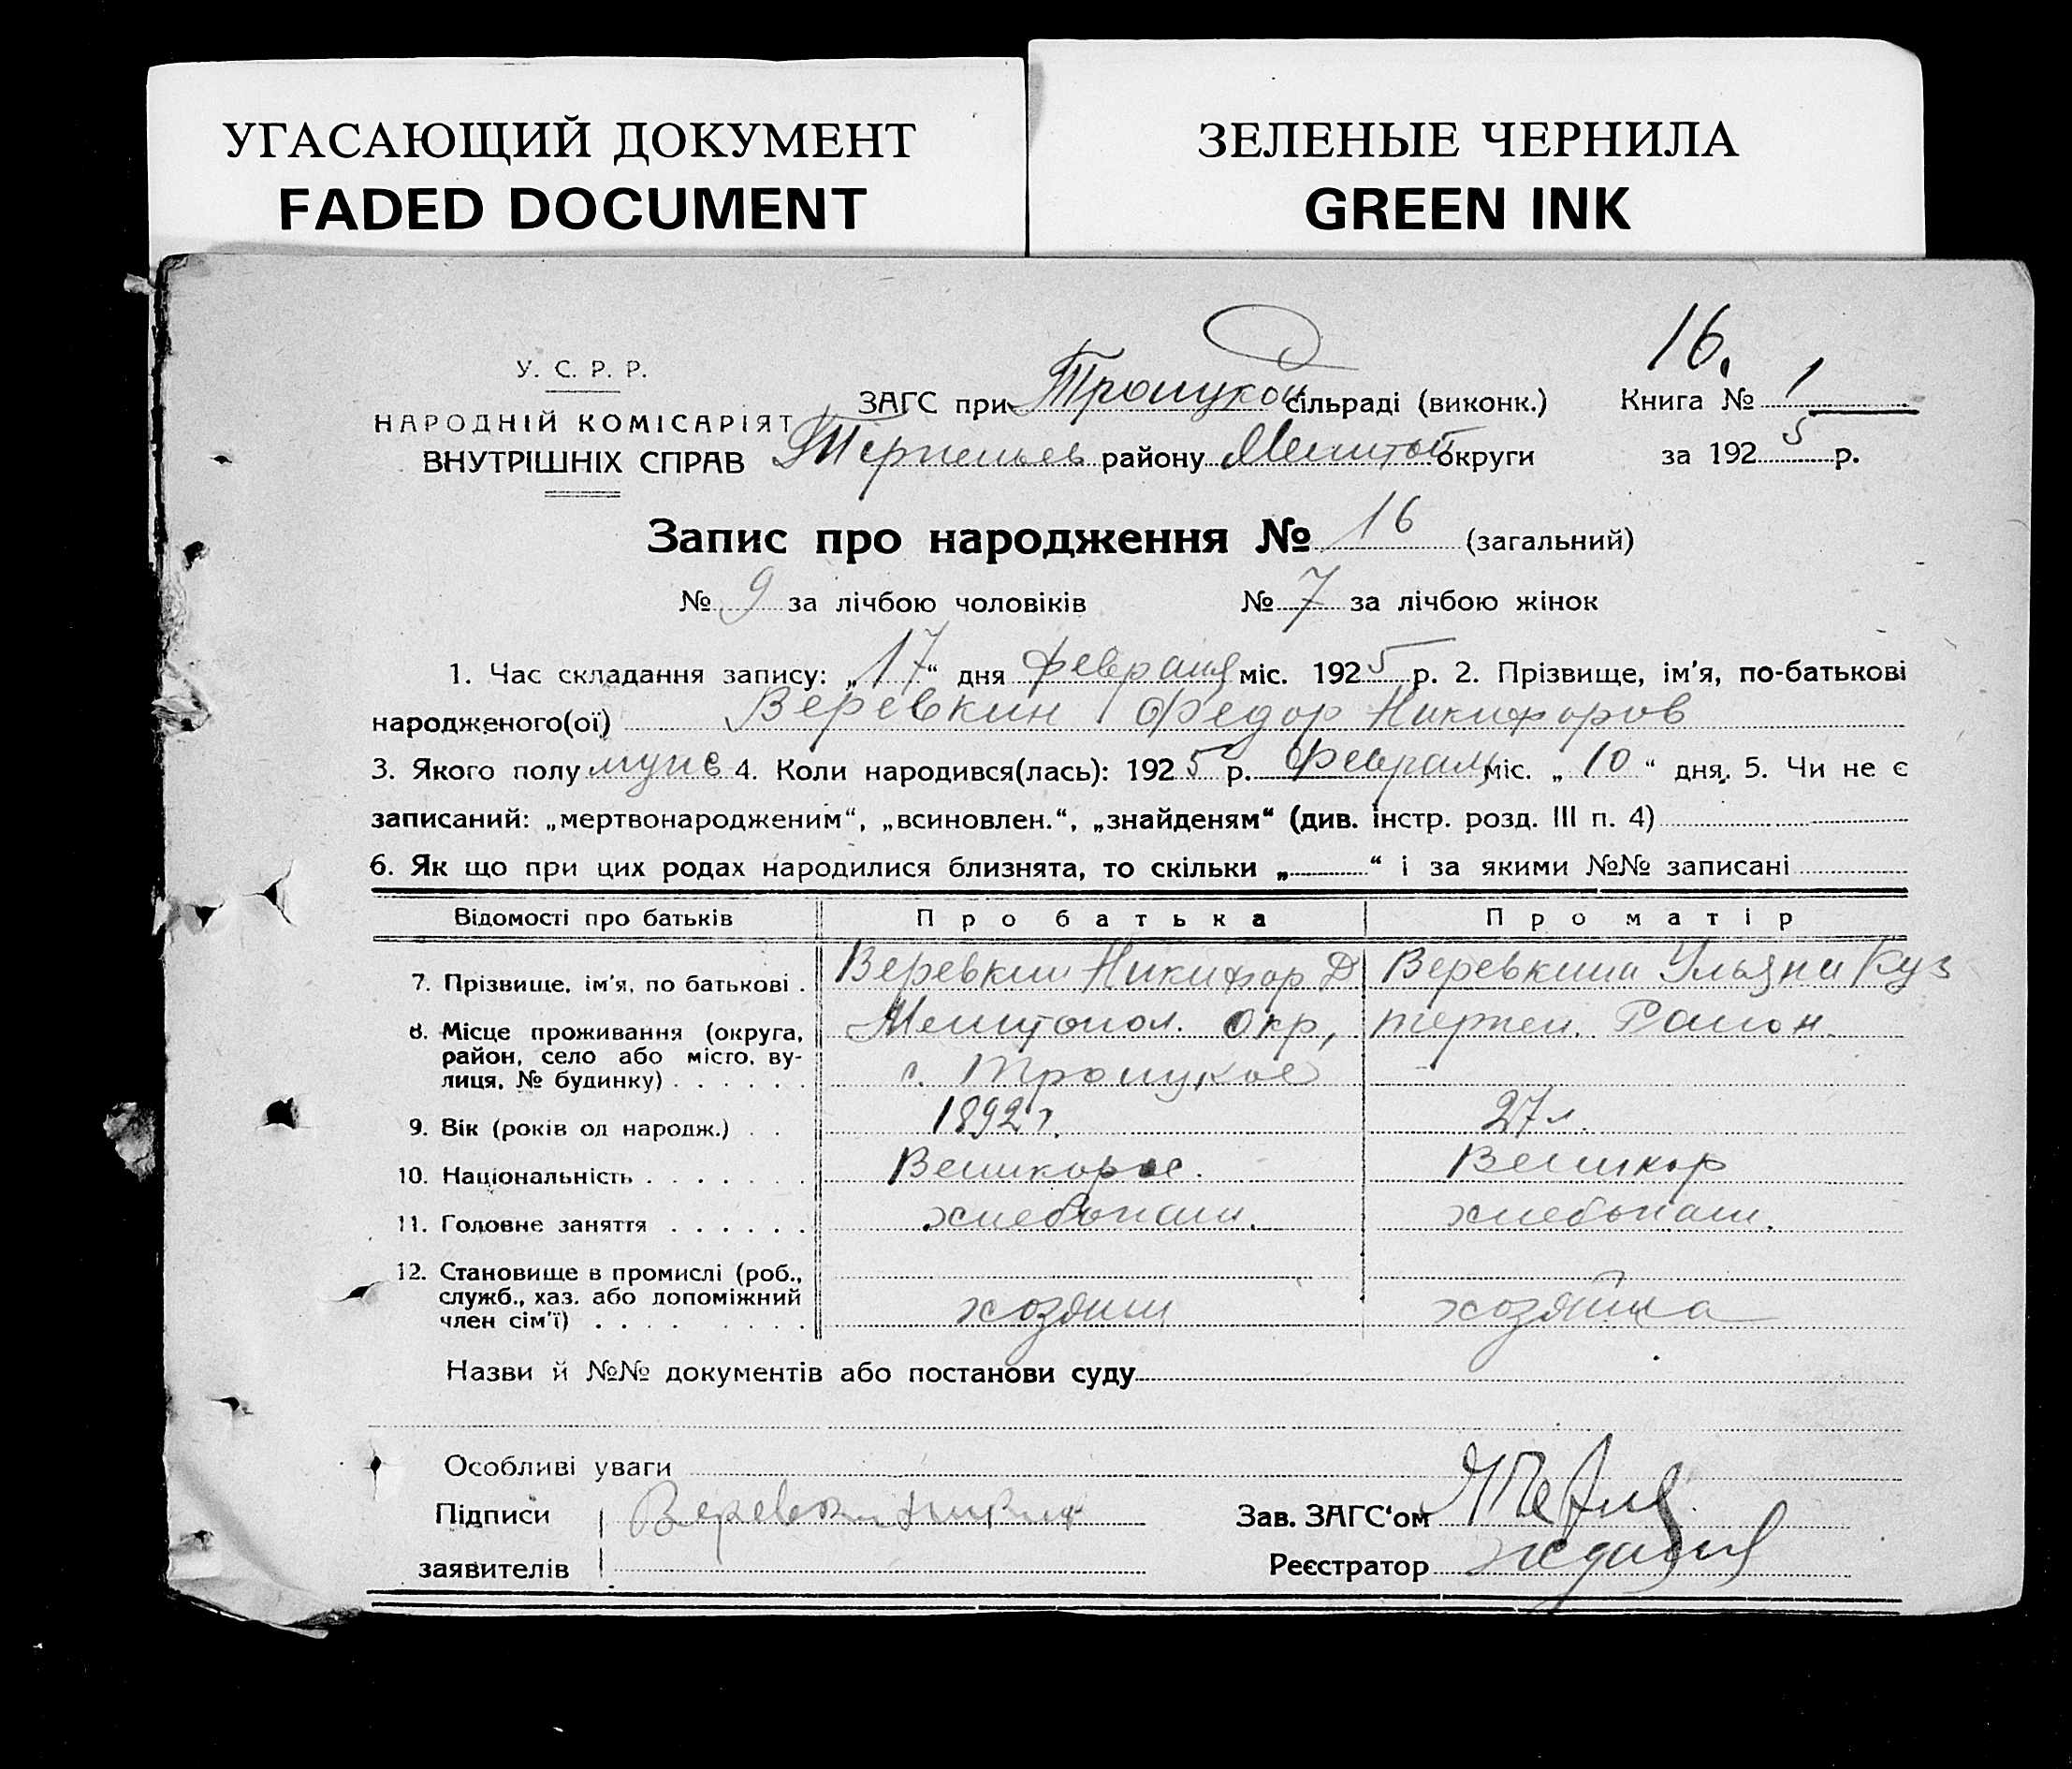 УГАСАЮЩИЙ ДОКУМЕНТ
FADED DOCUMENT
ЗЕЛЕНЫЕ ЧЕРНИЛА
GREEN INK
16.
У. С. Р. Р.
НАРОДНІЙ КОМІСАРІЯТ
ВНУТРІШНІХ СПРАВ
ЗАГС при Троицкой сільраді (виконк.) Книга № 1
Терпеньев району Мелитоп округи за 1925 р.
Запис про народження № 16 (загальний)
№ 9 за лічбою чоловіків № 7 за лічбою жінок
1. Час складання запису: „17“ дня февраля міс. 1925 р. 2. Прізвище, ім'я, по-батькові
народженого(ої) Веревкин Федор Никифоров
3. Якого полу муж 4. Коли народився(лась): 1925 р. Февраля міс. „10“ дня. 5. Чи не є
записаний: „мертвонародженим“, „всиновлен.“, „знайденям“ (див. інстр. розд. III п. 4)
6. Як що при цих родах народилися близнята, то скільки „ “ і за якими №№ записані
Відомості про батьків Про батька Про матір
7. Прізвище, ім'я, по батькові . Веревкин Никифор Д Веревкина Ульяна Куз
8. Місце проживання (округа, Мелитопол. Окр, терпен. Район.
район, село або місто, ву-
лиця, № будинку) . . . . . . с. Троицкое
9. Вік (років од народж.) . . 1892 г. 27 л.
10. Національність . . . . . . . Великорос. Великор
11. Головне заняття . . . . . . хлебопаш. хлебопаш.
12. Становище в промислі (роб.,
служб., хаз. або допоміжний
член сім'ї) . . . . . . . . хозяин хозяйка
Назви й №№ документів або постанови суду
Особливі уваги
Підписи Веревкин
Зав. ЗАГС'ом
заявителів
Реєстратор